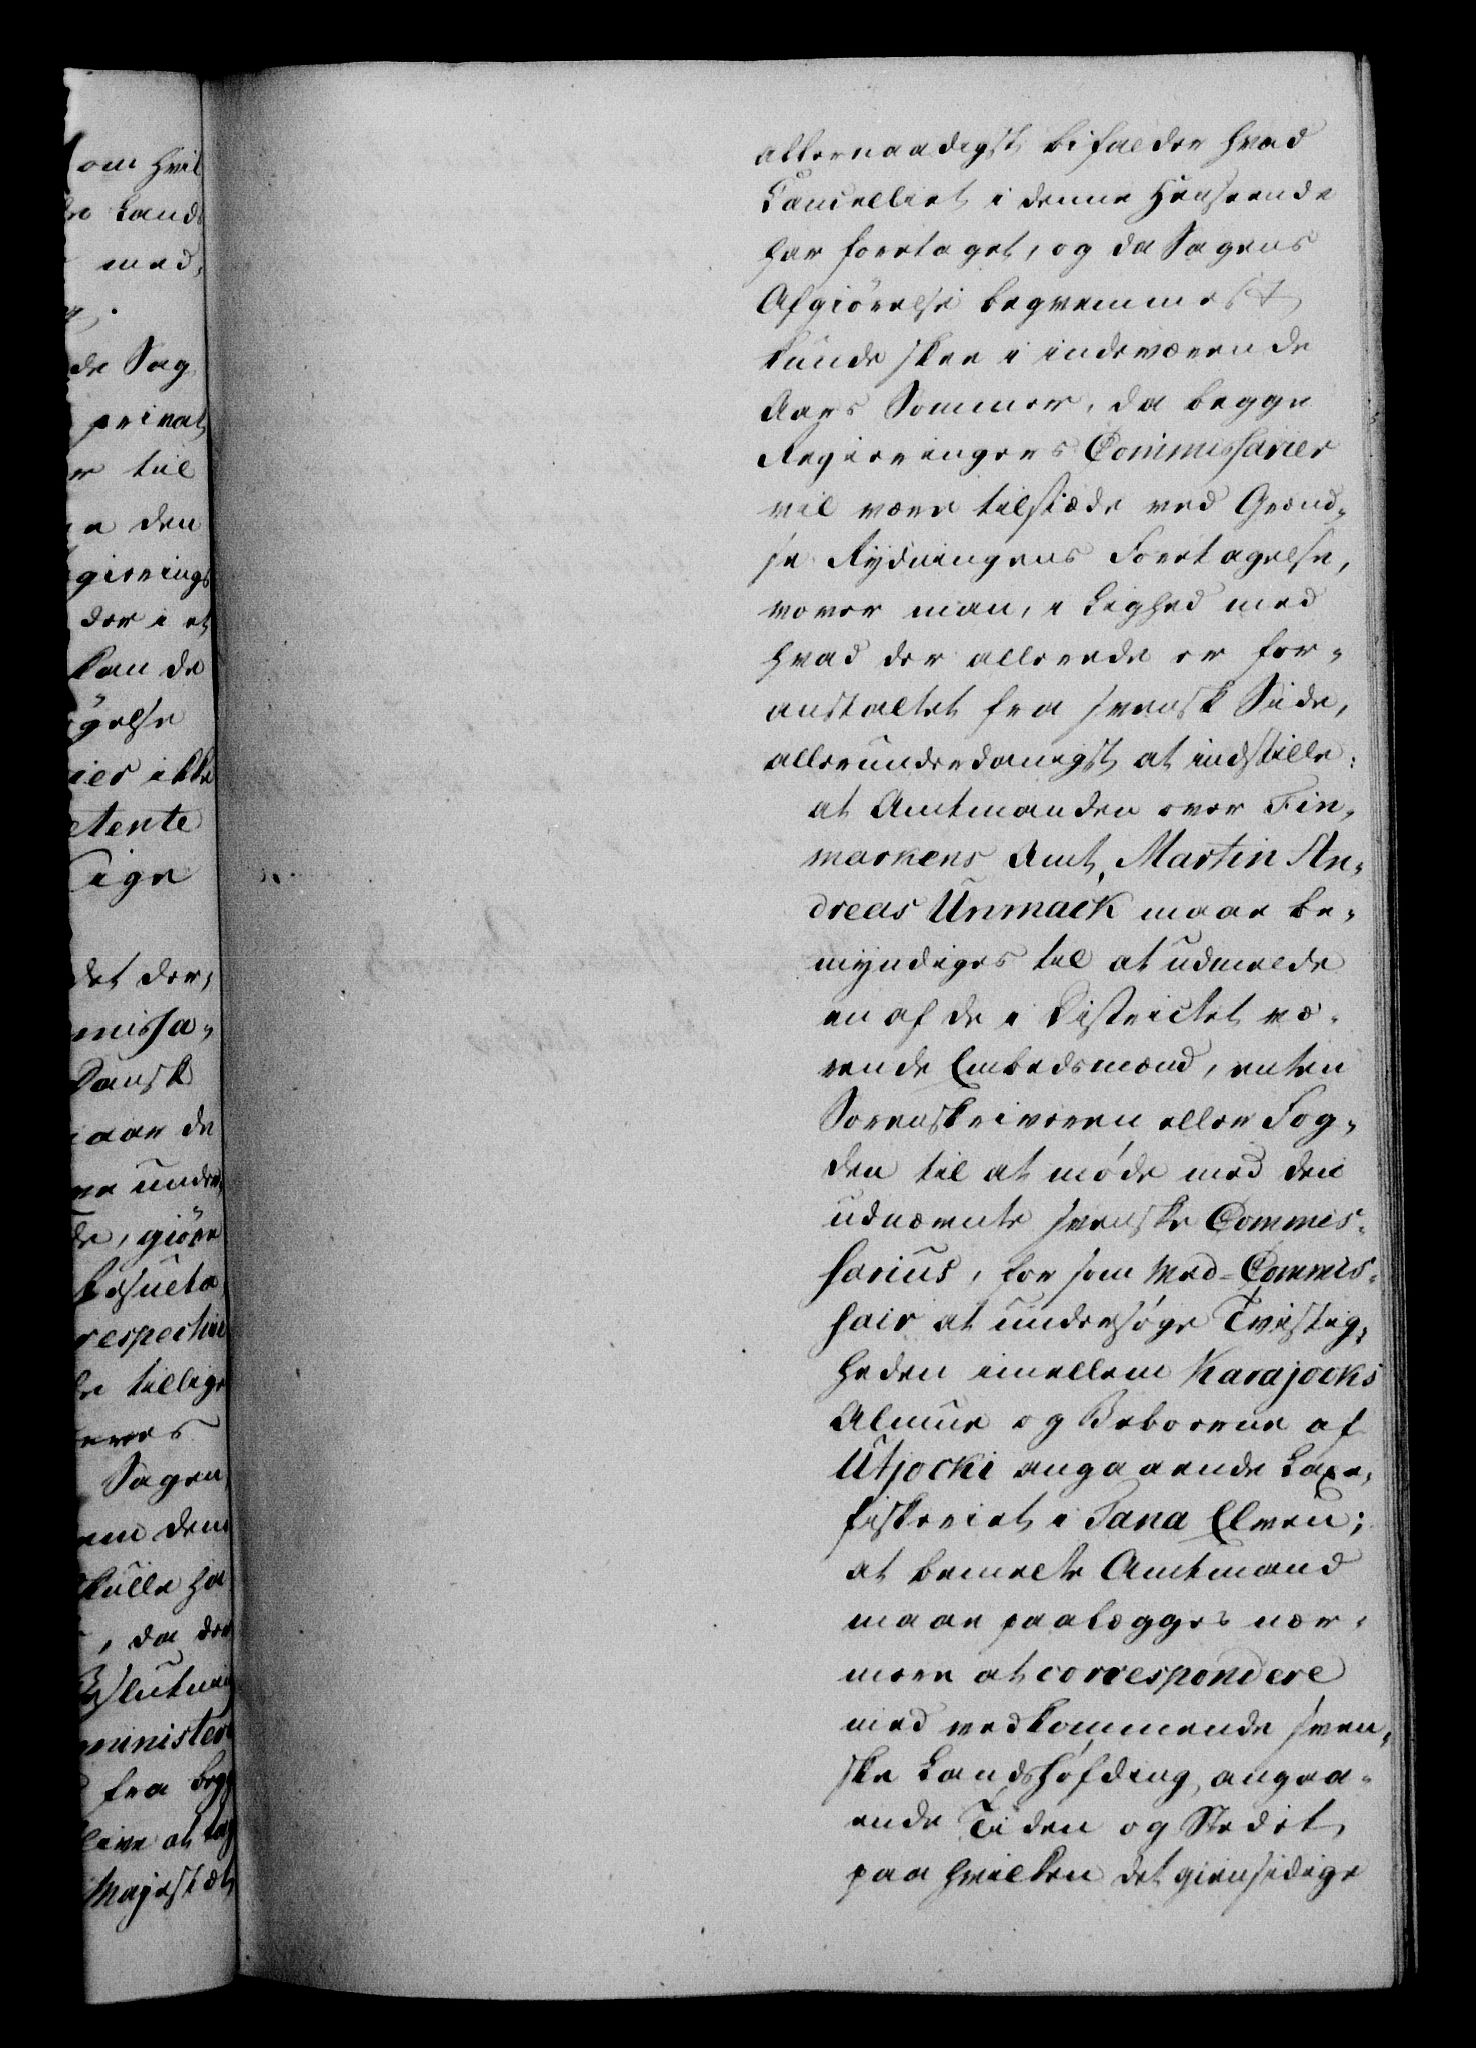 om hvil
de Land
med,
de Sag
privat
r til
a den
gierings
der i et
kan de
ygelse
ier ikke
etente
lige
det der,
missa,
Dansk
maae de
re under,
de, giöre
respective
de tillige
eres
Sagen,
em dem
skulle ha
, da der
Beslutnin
minister
fra begg
live at tag
Majestæt
allernaadigst bifalder hvad
Cancelliet i denne Henseende
har foretaget, og da Sagens
Afgiörelse beqvemmest
kunde skee i indeværende
Aars Sommer, da begge
Regieringers Commissarier
vil være tilstæde ved Grænd,
se Rydningens Foretagelse,
vover man, i Lighed med
hvad der allerede er for,
anstaltet fra svensk Side,
allerunderdanigst at indstille:
at Amtmanden over Fin,
markens Amt, Martin An,
dreas Unmack maae be,
myndiges til at udmelde
en af de i Districtet væ,
rende Embedsmænd, enten
Sorenskriveren eller Fog,
den til at møde med den
udnævnte svenske Commis,
sarius, for som Med-Commis,
sair at undersøge Tvistig,
heden imellem Karajocks
Almue og Beboerne af
Utjocki angaaende Laxe,
fiskeriet i Tana Elven;
at bemelte Amtmand
maae paalægges nær,
mere at correspondere
med vedkommende sven,
ske Landshøfding, angaa,
ende Tiden og Stedet,
paa hvilken det giensidige